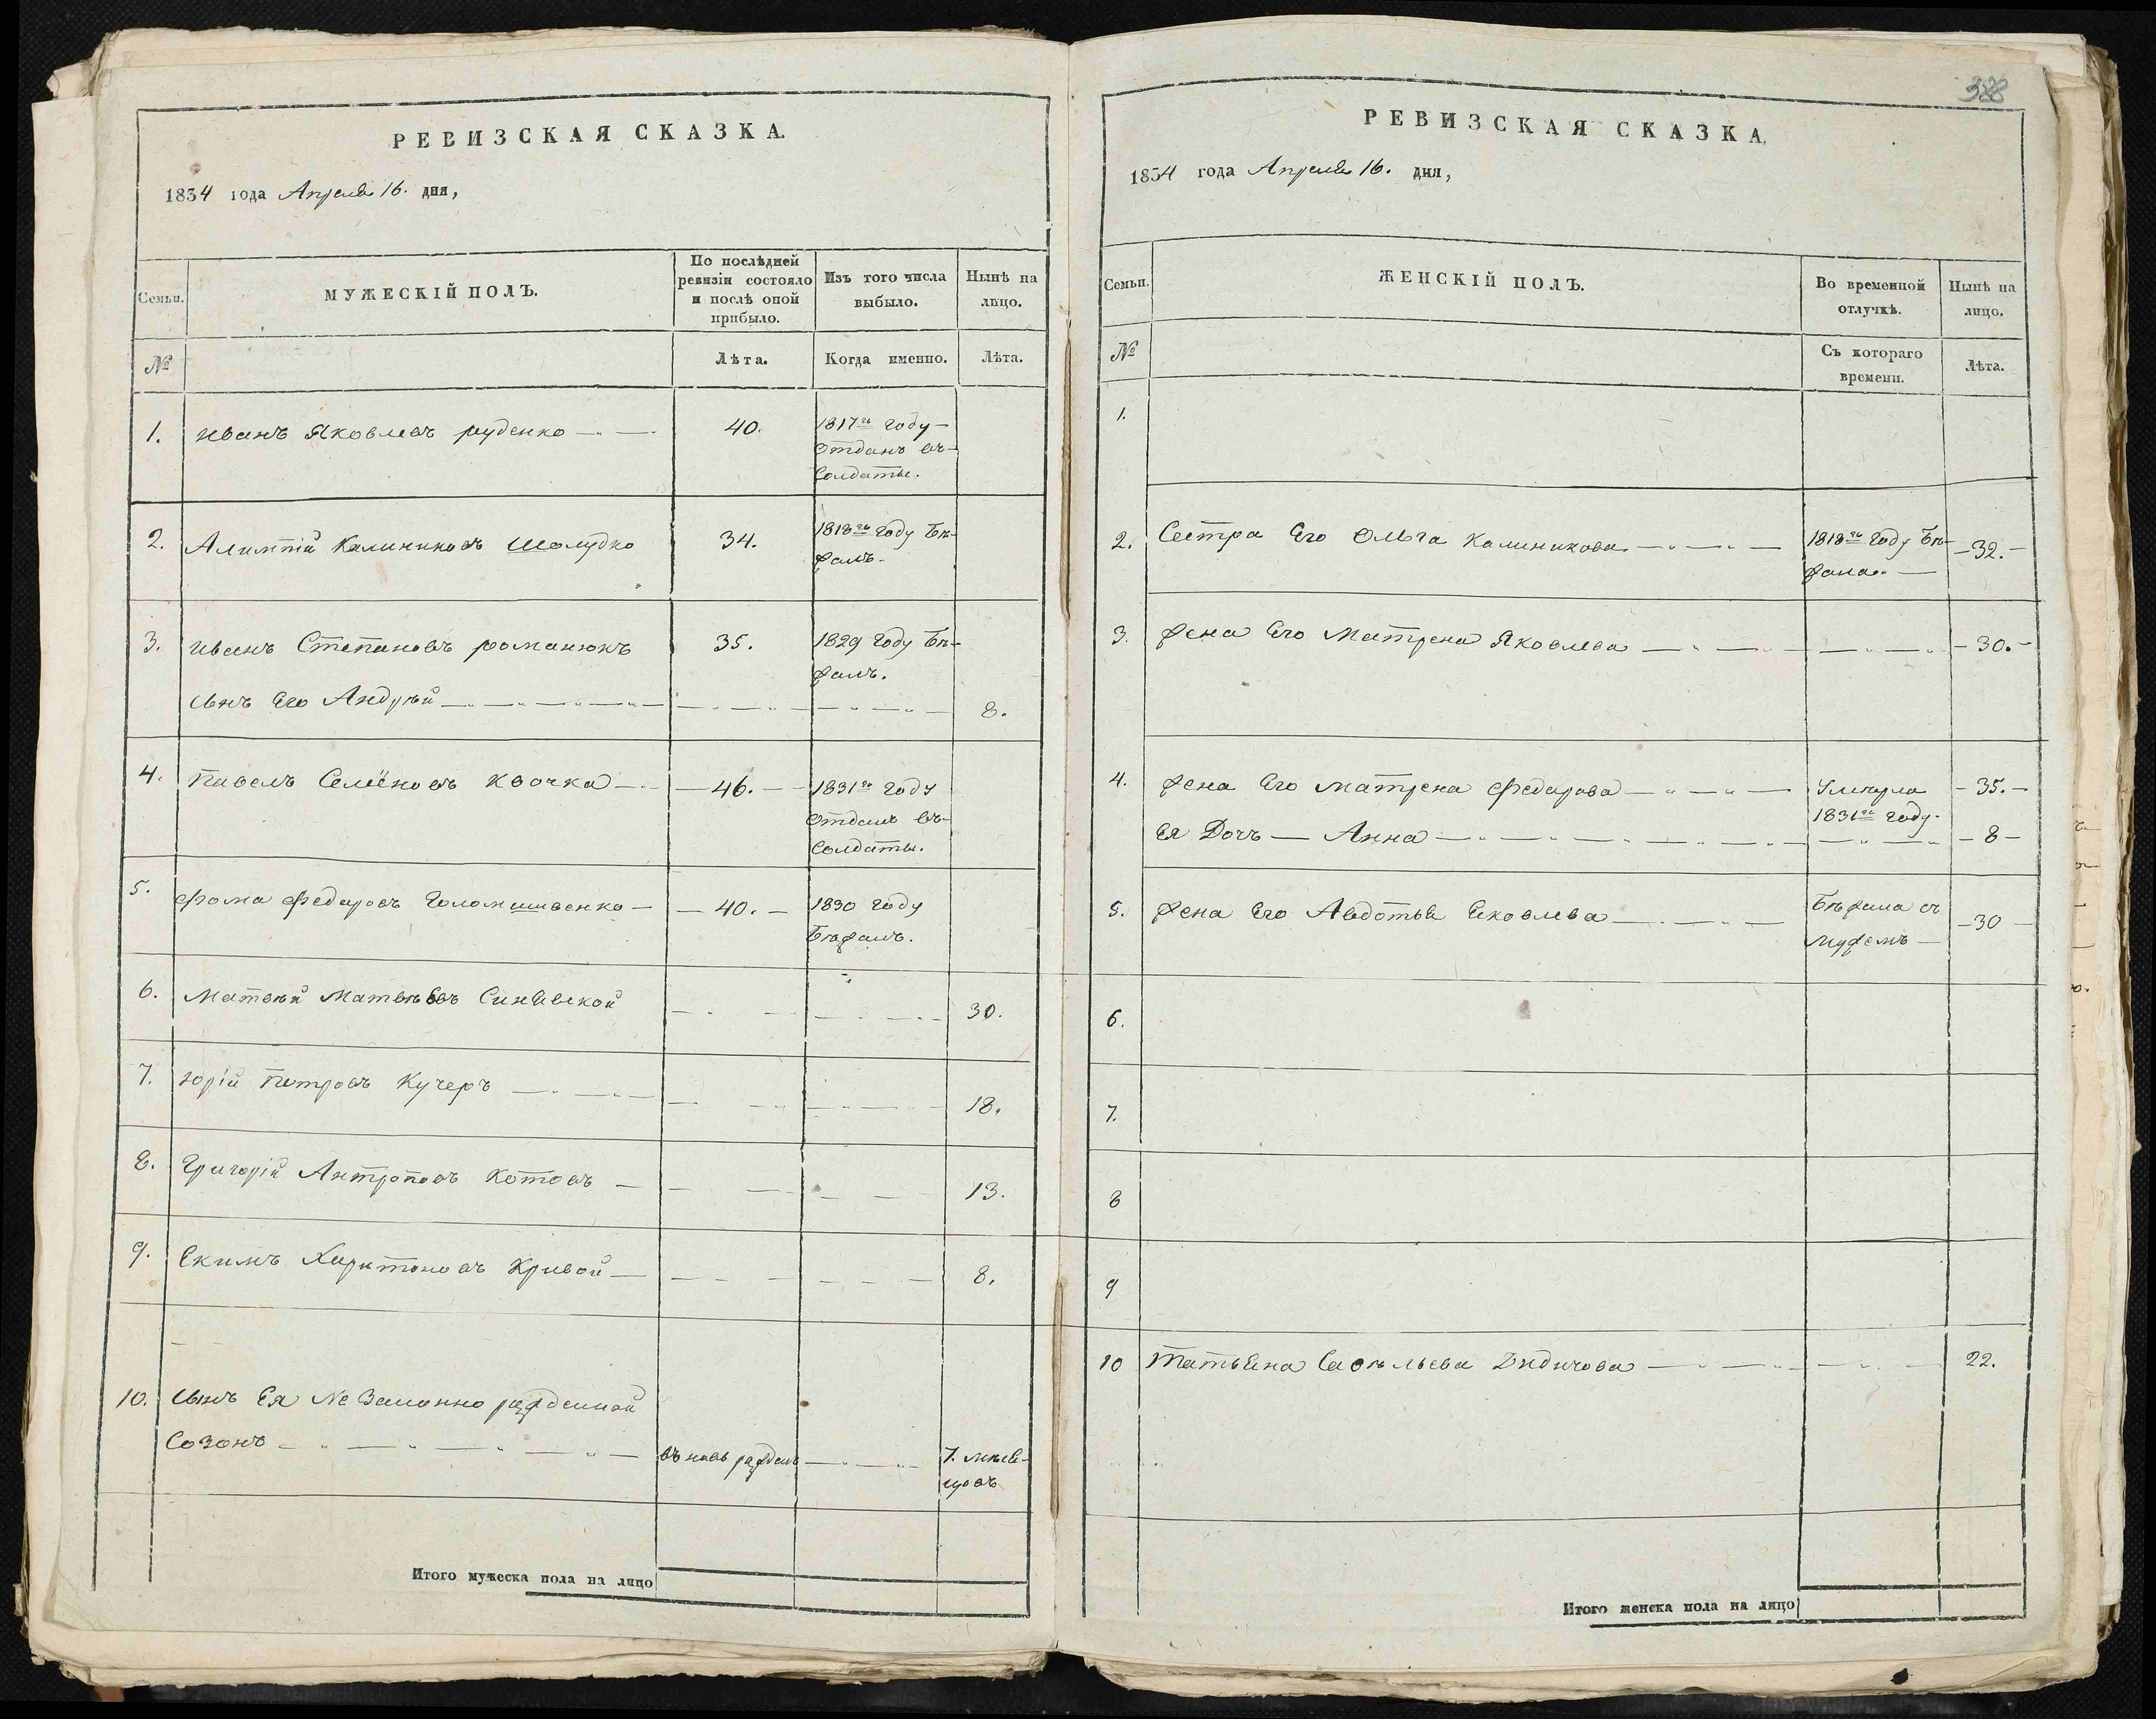 РЕВИЗСКАЯ СКАЗКА.
1834 года Апреля 16. дня,
Семьи.
МУЖЕСКІЙ ПОЛЪ.
По послѣдней
ревизіи состояло
и послѣ оной
прибыло.
Изъ того числа
выбыло.
Нынѣ на
лицо.
№
Лѣта.
Когда именно.
Лѣта.
1. иванъ Яковлевъ руденко 40. 1817го году
Отданъ въ
Солдаты.
2. Алимпій Калиниковъ Шолудко 34. 1818го году Бѣ-
жалъ.
3. иванъ Степановъ романюкъ 35. 1829 году Бѣ-
жалъ.
сынъ Его Андрѣй 8.
4. павелъ Семёновъ Квочка 46. 1831го году
Отданъ въ
Солдаты.
5. Фома Федаровъ 40. 1830 году
Бѣжалъ.
6. Матвѣй Матвѣевъ 30.
7. юрій петровъ Кучеръ 18.
8. Григорій Антроповъ Котовъ 13.
9. Екимъ Харитоновъ Кривой 8.
10. сынъ Ея Не Законно рожденной
Созонъ въновь рожденъ 7. мѣся-
цовъ
Итого мужеска пола на лицо
388
РЕВИЗСКАЯ СКАЗКА.
1834 года Апреля 16. дня,
Семьи.
ЖЕНСКІЙ ПОЛЪ.
Во временной
отлучкѣ.
Нынѣ на
лицо.
№
Съ котораго
времени.
Лѣта.
1.
2. Сестра Его Ольга Калиникова 1818го году Бѣ- 32.
жала
3. жена Его Матрена Яковлева 30.
4. жена Его матрена Федарова Умерла 35.
1831го году.
Ея Дочь Анна 8
5. жена Его Авдотья Яковлева Бѣжала съ 30
мужемъ
6.
7.
8
9
10 Татьяна Савельева Дидичова 22.
Итого женска пола на лицо